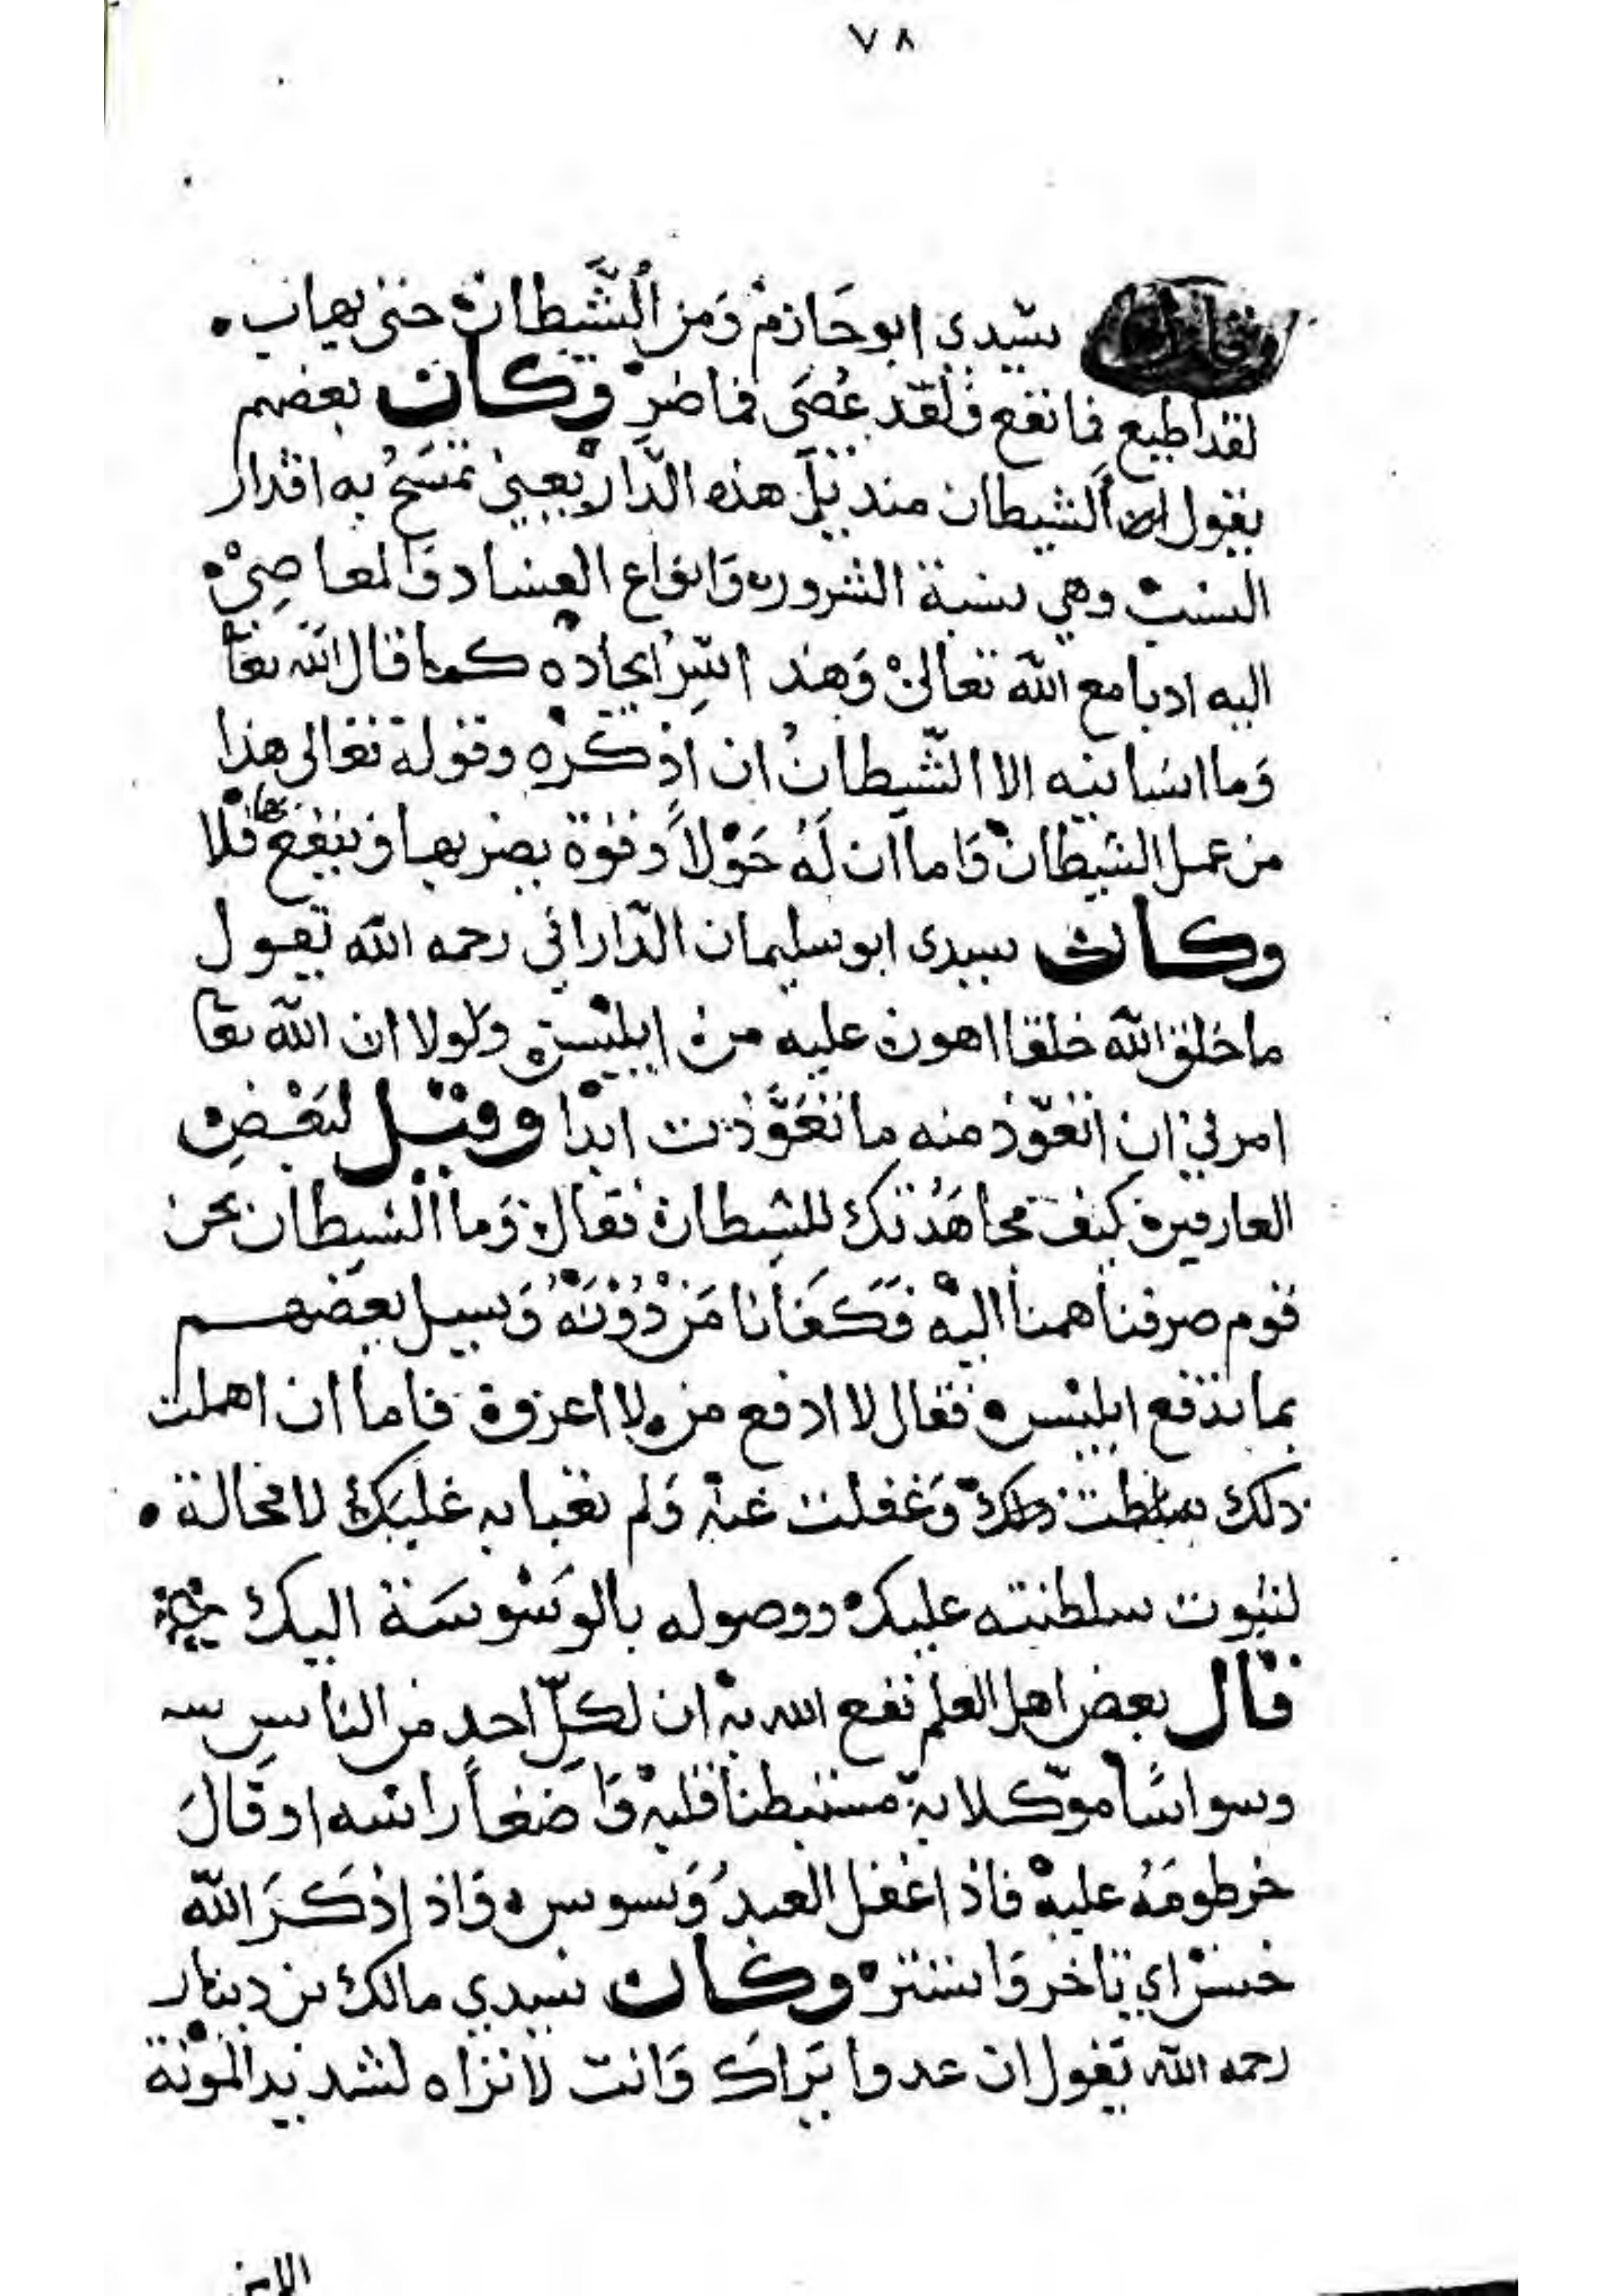 ٧٨
وقال سيدي ابو حازم وَمن الشَّيطان حتى يهاب
لقد اطيع فما نفع وَلقد عُصَى فما ضر وكان بعضهم
يقول ان الشيطان منديل هذه الدّار يعني تمسَحُ به اقدار
النسب وهي نسبة الشرور وَانواع الفساد وَالمعاصِي
اليه ادبا مع الله تعالى وَهذا سِرّ ايجاده كما قال الله تعا
وَما انسانيه الا الشّيطانُ ان اذكره وقوله تعالى هذا
من عمل الشيطان وَاما ان لَهُ حَوْلاً وقوة يضر بها وَينفع بها فلا
وكان سيدي ابو سليمان الدّاراني رحمه الله يقول
ما خلق الله خلقا اهون عليه من ابليس ولولا ان الله تعا
امرني ان اتعوّذ منه ما تعَوَّذت ابدا وقيل لبَعْضِ
العارفين كيف مجاهَدُتك للشيطان فقال وَما الشيطان نحن
قوم صرفنا هممنا اليه فَكَفانا مَن دُوْنَهُ وَسيل بعضهم
بما تدفع ابليس فقال لا ادفع من لا اعرفه فاما ان اهملت
ذلك وَغفلت عنه وَلم تعبا به غلبَك لا محالة
لثبوت سلطنته عليك ووصوله بالوَسْوسَة اليك
قال بعض اهل العلم نفع الله به ان لكلّ احدٍ من الناسِ
وسواسًا موّكلا به مستبطنا قلبه وَاضعاً راسه او قالَ
خرطومَهُ عليه فاذا غفل العبدُ وَسوس وَاذا ذكَرَ الله
خنس اي تاخر وَاستتر وكان سيدي مالك بن دينار
رحمه الله يَقول ان عدوا يَراكَ وَانت لا تراه لشديد المؤنة